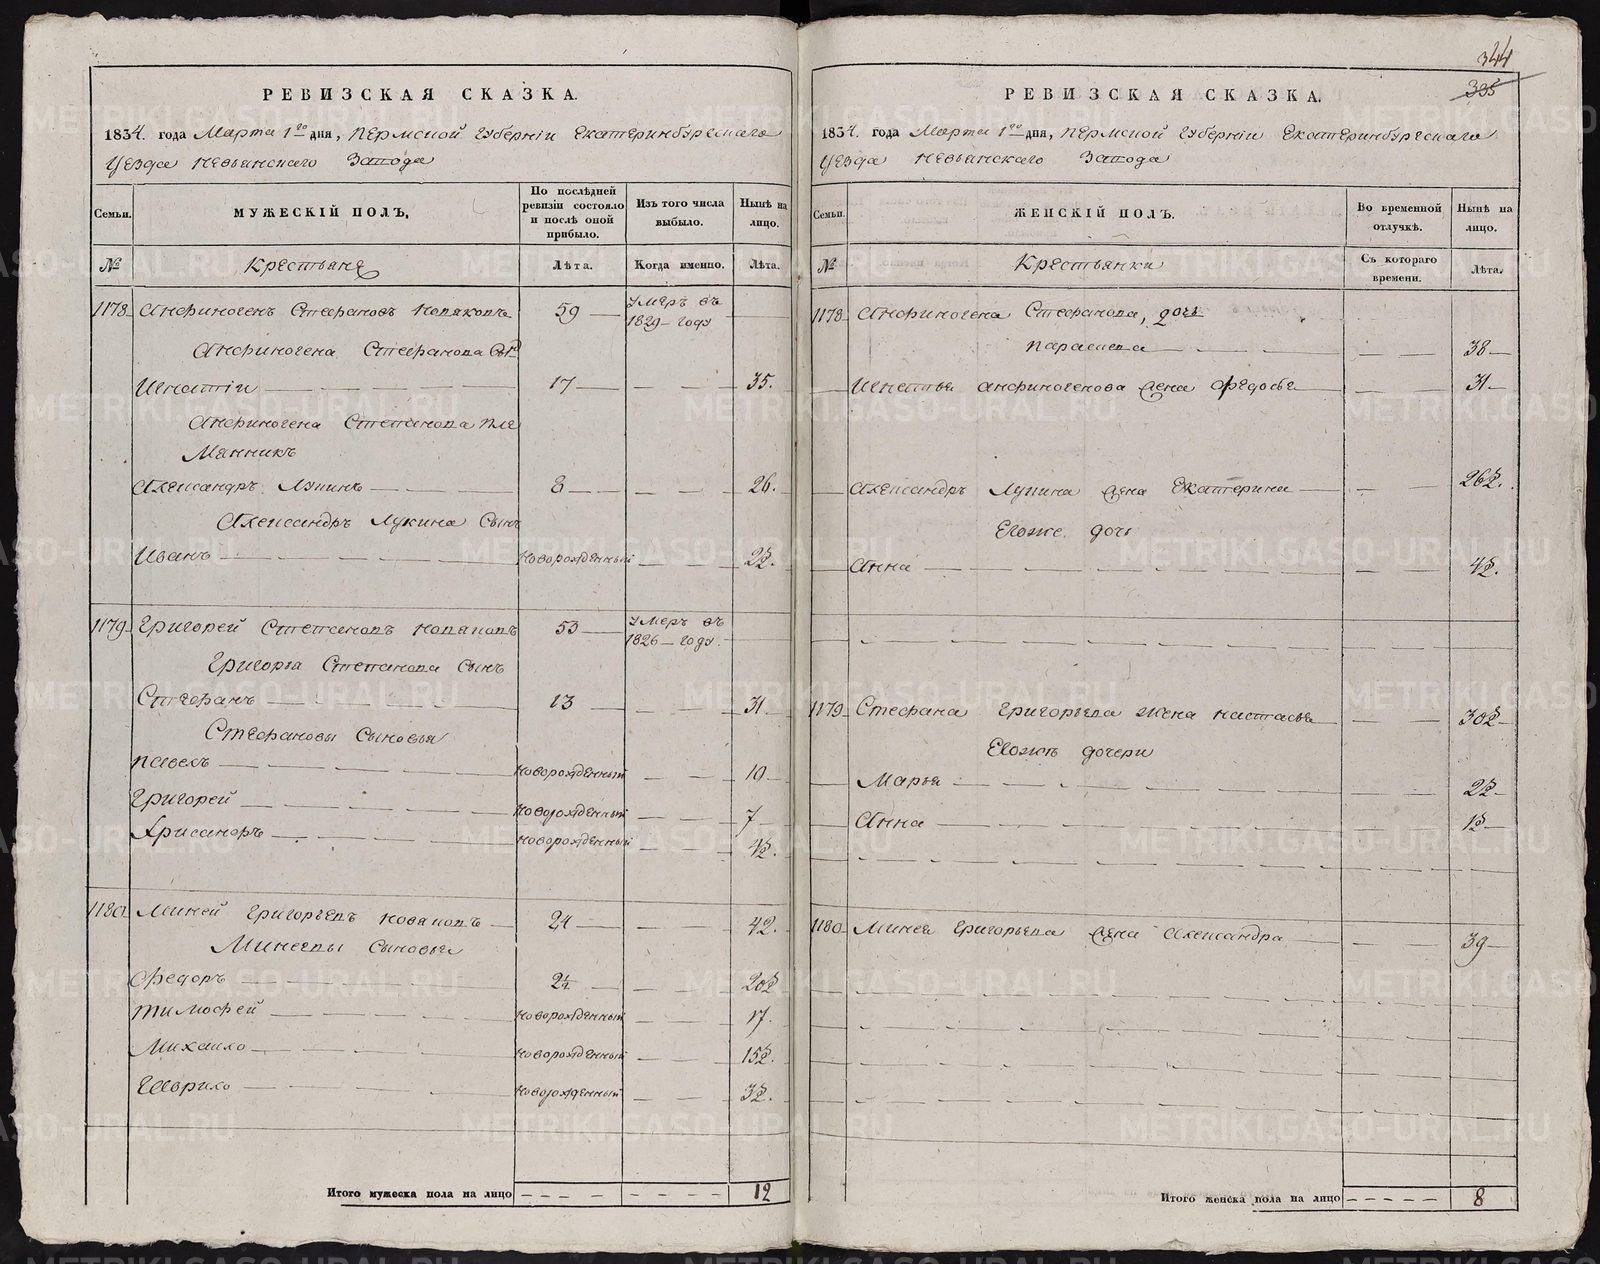 344
335
РЕВИЗСКАЯ СКАЗКА.
1834. года Марта 1го дня, Пермской Губерніи Екатеринбургскаго
Уезда Невьянскаго Завода
Семьи.
МУЖЕСКІЙ ПОЛЪ,
По послѣдней ревизіи состояло и послѣ оной прибыло.
Изъ того числа выбыло.
Нынѣ на лицо.
№
Крестьяне
Лѣта.
Когда именно.
Лѣта.
1178 Анфиногенъ Стефановъ 59 Умеръ въ
1829 году
Анфиногена Стефанова Сынъ
Игнатій 17 35.
Анфиногена Степанова пле
мянникъ
Александръ Лукинъ 8 26.
Александръ Лукина Сынъ
Иванъ новорожденный 2½.
1179 Григорей Степановъ 53 Умеръ въ
1826 году.
Григорья Степанова сынъ
Стефанъ 13 31
Стефановы сыновья
Павелъ новорожденный 10
Григорей новорожденный 7
Хрисанфъ новорожденный 4½.
1180 Миней Григорьевъ 24 42.
Минеевы сыновья
Федоръ 2½ 20½
Тимофей новорожденный 17.
Михайло новорожденный 15½.
Гаврило новорожденный 3½.
Итого мужеска пола на лицо 12
РЕВИЗСКАЯ СКАЗКА.
1834. года Марта 1го дня, Пермской Губерніи Екатеринбургскаго
Уезда Невьянскаго Завода
Семьи.
ЖЕНСКІЙ ПОЛЪ.
Во временной отлучкѣ.
Нынѣ на лицо.
№
Крестьянки
Съ котораго времени.
Лѣта.
1178 Анфиногена Стефанова, дочь
Парасковья 38
Игнатья Анфиногенова жена Федосья 31
Александръ Лукина жена Екатерина 26½.
Егоже дочь
Анна 4½.
1179 Стефана Григорьева жена Настасья 30½
Егожъ дочери
Марья 2½
Анна 1½
1180 Минея Григорьева жена Александра 39
Итого женска пола на лицо 8
METRIKI.GASO-URAL.RU